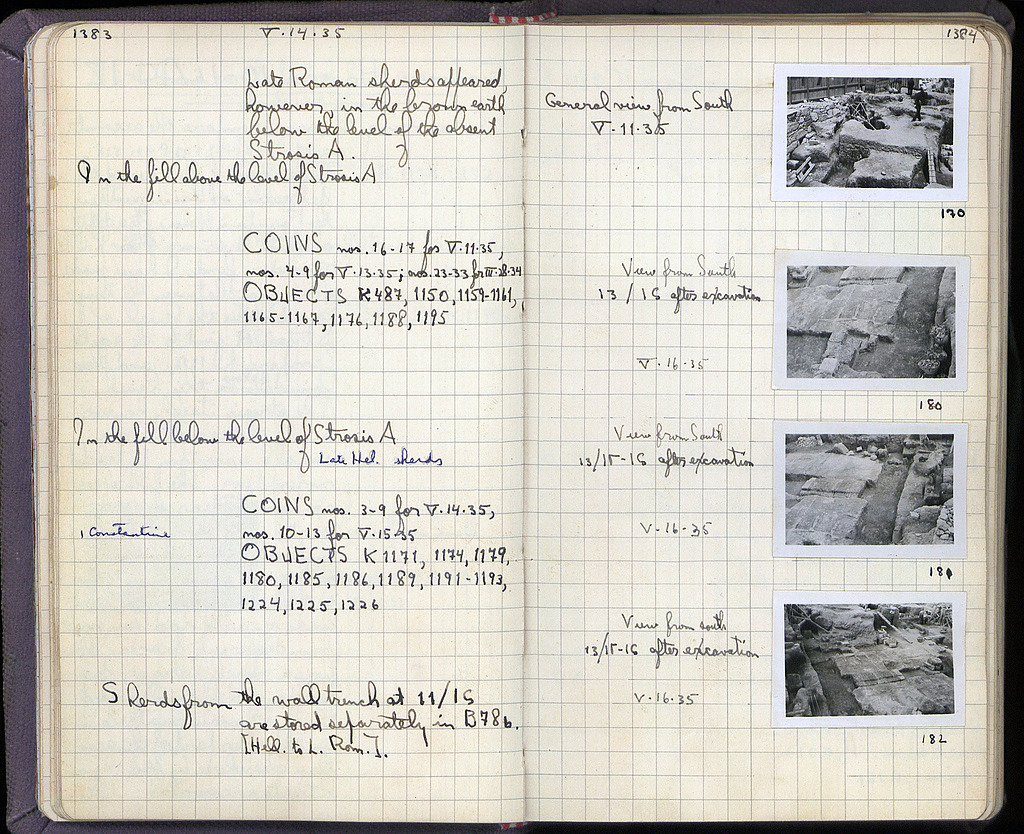 1383
V·14·35
Late Roman sherds appeared,
however, in the brown earth
below the level of the absent
Strosis A.
In the fill above the level of Strosis A
COINS nos. 16-17 for V·11·35,
nos. 4-9 for V·13·35; nos. 23-33 for
OBJECTS K 487, 1150, 1159-1161,
1165-1167, 1176, 1188, 1195
In the fill below the level of Strosis A
Late Hel. sherds
COINS nos. 3-9 for V·14·35,
1 Constantine
nos. 10-13 for V·15·35
OBJECTS K 1171, 1174, 1179,
1180, 1185, 1186, 1189, 1191-1193,
1224, 1225, 1226
Sherds from the wall trench at 11/ΙS
are stored separately in B78b.
[Hell. to L. Rom.].
1384
General view from South
V·11·35
170
View from South
13/ΙS after excavation
V·16·35
180
View from South
13/ΙΓ-ΙS after excavation
V-16-35
181
View from south
13/ΙΓ-ΙS after excavation
V·16·35
182